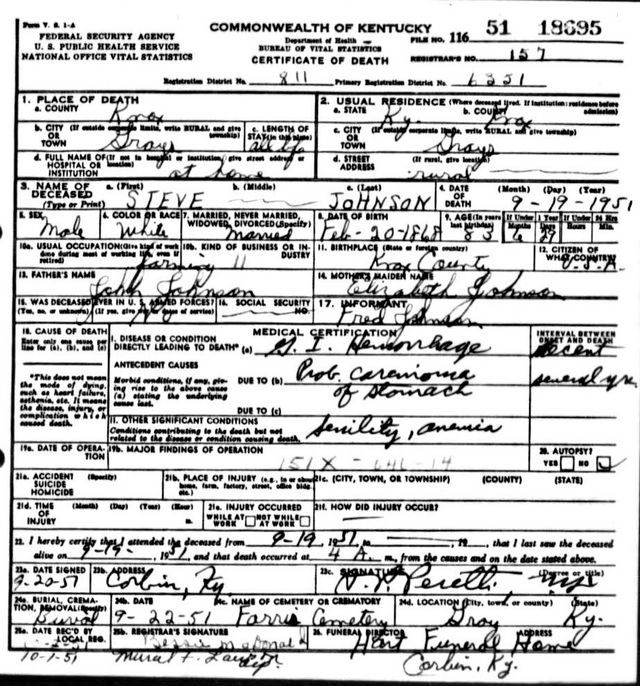 Form V. S. 1-A
FEDERAL SECURITY AGENCY
U. S. PUBLIC HEALTH SERVICE
NATIONAL OFFICE VITAL STATISTICS
COMMONWEALTH OF KENTUCKY
Department of Health
BUREAU OF VITAL STATISTICS
CERTIFICATE OF DEATH
FILE NO. 116 51 18695
REGISTRAR'S NO. 157
Registration District No. 811 Primary Registration District No. 6351
1. PLACE OF DEATH
a. COUNTY Knox
2. USUAL RESIDENCE (Where deceased lived. If institution: residence before admission)
a. STATE Ky. b. COUNTY Knox
b. CITY (If outside corporate limits, write RURAL and give township) OR TOWN Grays
c. LENGTH OF STAY (in this place) all life
c. CITY (If outside corporate limits, write RURAL and give township) OR TOWN Grays
d. FULL NAME OF (If not in hospital or institution, give street address or location) HOSPITAL OR INSTITUTION at home
d. STREET ADDRESS (If rural, give location) rural
3. NAME OF DECEASED (Type or Print) a. (First) STEVE b. (Middle) c. (Last) JOHNSON
4. DATE OF DEATH (Month) (Day) (Year) 9-19-1951
5. SEX Male
6. COLOR OR RACE White
7. MARRIED, NEVER MARRIED, WIDOWED, DIVORCED (Specify) Married
8. DATE OF BIRTH Feb-20-1868
9. AGE (In years last birthday) 83 If Under 1 Year 6 29 If Under 24 Hrs Hours Min.
10a. USUAL OCCUPATION (Give kind of work done during most of working life, even if retired) farming
10b. KIND OF BUSINESS OR INDUSTRY "
11. BIRTHPLACE (State or foreign country) Knox County
12. CITIZEN OF WHAT COUNTRY? U.S.A.
13. FATHER'S NAME John Johnson
14. MOTHER'S MAIDEN NAME Elizabeth Johnson
15. WAS DECEASED EVER IN U. S. ARMED FORCES? (Yes, no, or unknown) (If yes, give war or dates of service)
16. SOCIAL SECURITY NO.
17. INFORMANT Fred Johnson
18. CAUSE OF DEATH
Enter only one cause per line for (a), (b), and (c)
*This does not mean the mode of dying, such as heart failure, asthenia, etc. It means the disease, injury, or complication which caused death.
MEDICAL CERTIFICATION
INTERVAL BETWEEN ONSET AND DEATH
I. DISEASE OR CONDITION DIRECTLY LEADING TO DEATH* (a) G. I. Hemorrhage recent
ANTECEDENT CAUSES
Morbid conditions, if any, giving rise to the above cause (a) stating the underlying cause last.
DUE TO (b) Prob. carcinoma of stomach several yrs
DUE TO (c)
II. OTHER SIGNIFICANT CONDITIONS
Conditions contributing to the death but not related to the disease or condition causing death. Senility, anemia
19a. DATE OF OPERATION
19b. MAJOR FINDINGS OF OPERATION
151X - 046-14
20. AUTOPSY? YES NO
21a. ACCIDENT SUICIDE HOMICIDE
21b. PLACE OF INJURY (e.g., in or about home, farm, factory, street, office bldg. etc.)
21c. (CITY, TOWN, OR TOWNSHIP) (COUNTY) (STATE)
21d. TIME OF INJURY (Month) (Day) (Year) (Hour) m.
21e. INJURY OCCURRED WHILE AT WORK NOT WHILE AT WORK
21f. HOW DID INJURY OCCUR?
22. I hereby certify that I attended the deceased from 9-19, 1951, to , 19 , that I last saw the deceased
alive on 9-19-, 1951, and that death occurred at 4 A. m., from the causes and on the date stated above.
23a. DATE SIGNED 9-20-51
23b. ADDRESS Corbin, Ky.
23c. SIGNATURE (Degree or title)
24a. BURIAL, CREMATION, REMOVAL (Specify) Burial
24b. DATE 9-22-51
24c. NAME OF CEMETERY OR CREMATORY Farris Cemetery
24d. LOCATION (City, town, or county) (State) Gray Ky.
25a. DATE REC'D BY LOCAL REG. 10-1-51
25b. REGISTRAR'S SIGNATURE Bessie McDonald
26. FUNERAL DIRECTOR ADDRESS Hart Funeral Home
Corbin, Ky.